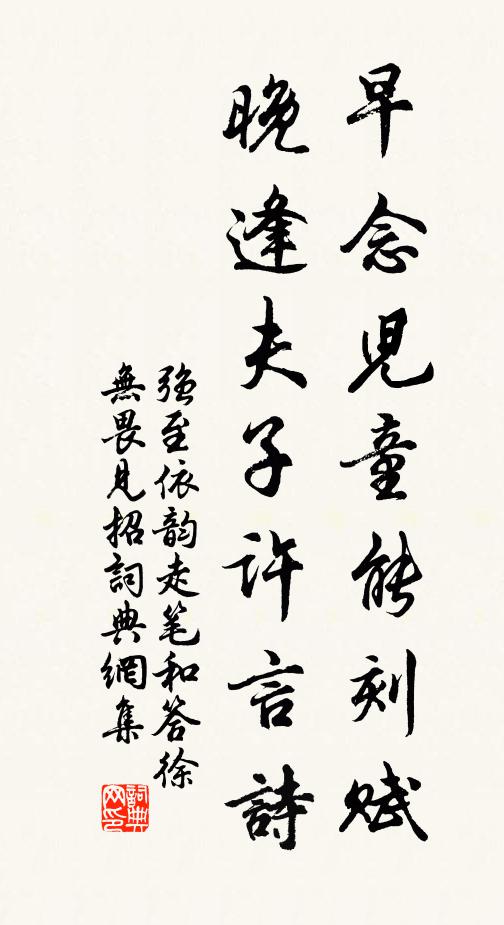 早念兒童能刻賦
晚逢夫子許言詩
強至依韵走笔和答徐
無畏見招詞典網集
詞典网印